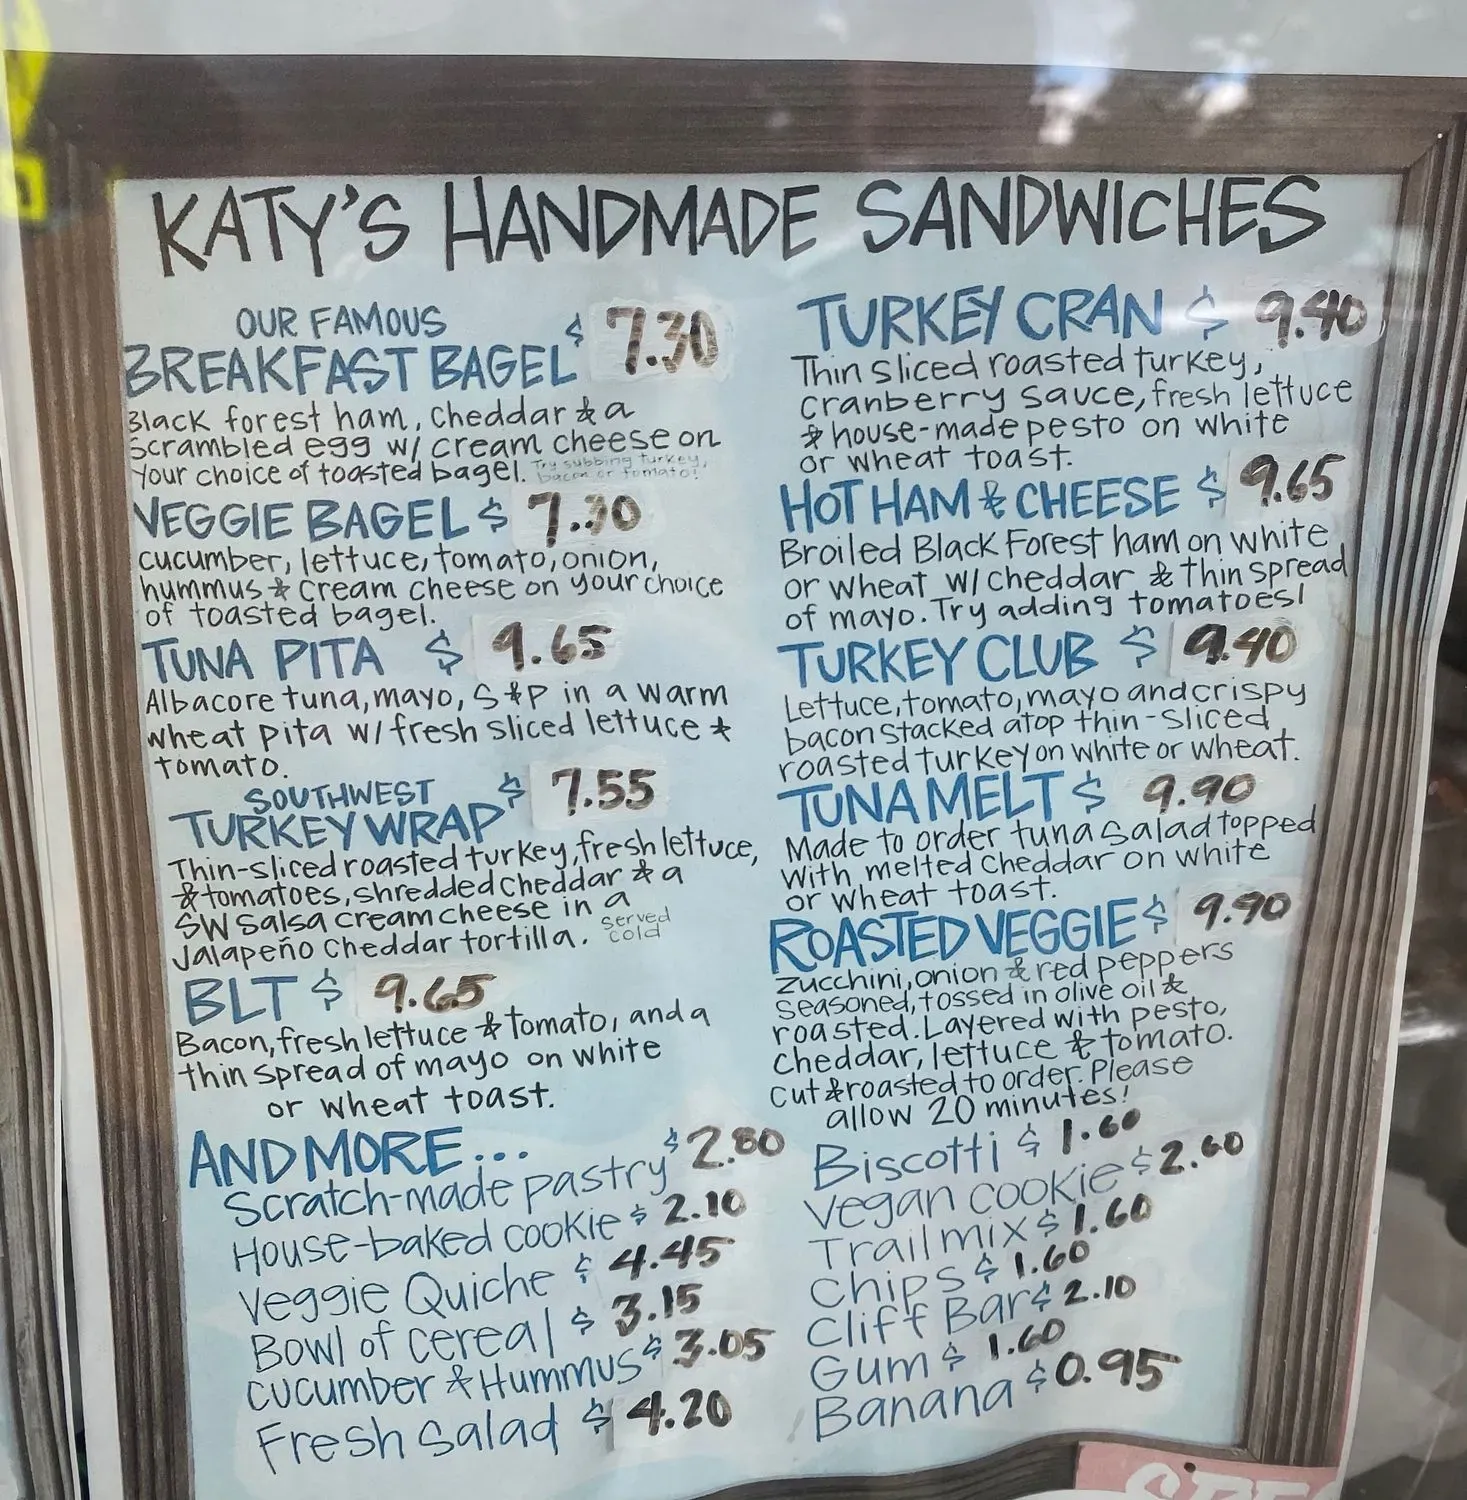 KATY'S HANDMADE SANDWICHES
OUR FAMOUS
BREAKFAST BAGEL $ 7.30
Black forest ham, cheddar & a
scrambled egg w/ cream cheese on
your choice of toasted bagel. Try subbing turkey,
bacon or tomato!
VEGGIE BAGEL $ 7.30
cucumber, lettuce, tomato, onion,
hummus & cream cheese on your choice
of toasted bagel.
TUNA PITA $ 9.65
Albacore tuna, mayo, S&P in a warm
wheat pita w/ fresh sliced lettuce &
tomato.
SOUTHWEST
TURKEY WRAP $ 7.55
Thin-sliced roasted turkey, fresh lettuce,
& tomatoes, shredded cheddar & a
SW salsa cream cheese in a
Jalapeño cheddar tortilla. served
cold
BLT $ 9.65
Bacon, fresh lettuce & tomato, and a
thin spread of mayo on white
or wheat toast.
TURKEY CRAN $ 9.40
Thin sliced roasted turkey,
cranberry sauce, fresh lettuce
& house-made pesto on white
or wheat toast.
HOT HAM & CHEESE $ 9.65
Broiled Black Forest ham on white
or wheat w/ cheddar & thin spread
of mayo. Try adding tomatoes!
TURKEY CLUB $ 9.40
Lettuce, tomato, mayo and crispy
bacon stacked atop thin-sliced
roasted turkey on white or wheat.
TUNA MELT $ 9.90
Made to order tuna salad topped
with melted cheddar on white
or wheat toast.
ROASTED VEGGIE $ 9.90
zucchini, onion & red peppers
seasoned, tossed in olive oil &
roasted. Layered with pesto,
cheddar, lettuce & tomato.
cut & roasted to order. Please
allow 20 minutes!
AND MORE...
Scratch-made pastry $ 2.80
House-baked cookie $ 2.10
Veggie Quiche $ 4.45
Bowl of cereal $ 3.15
cucumber & Hummus $ 3.05
Fresh salad $ 4.20
Biscotti $ 1.60
Vegan cookie $ 2.60
Trail mix $ 1.60
Chips $ 1.60
Cliff Bar $ 2.10
Gum $ 1.60
Banana $ 0.95